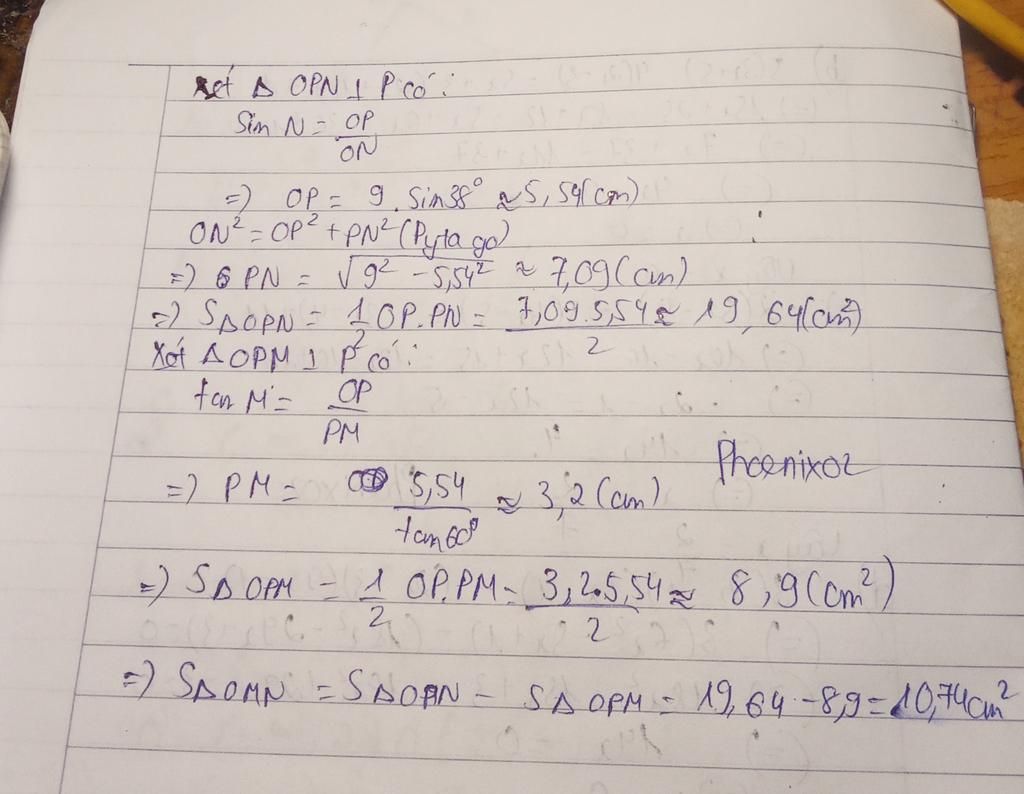 Xét Δ OPN ⊥ P có:
Sin N = OP/ON
=) OP = 9. Sin38° ≈ 5,54(cm)
ON² = OP² + PN² (Pytago)
=) PN = √9² - 5,54² ≈ 7,09(cm)
=) SΔOPN = 1/2 OP.PN = 7,09.5,54/2 ≈ 19,64(cm²)
Xét ΔOPM ⊥ P có:
tan M = OP/PM
=) PM = 5,54/tan60° ≈ 3,2(cm)
Phoenixoz
=) SΔOPM = 1/2 OP.PM = 3,2.5,54/2 ≈ 8,9(cm²)
=) SΔOMN = SΔOPN - SΔOPM = 19,64 - 8,9 = 10,74cm²